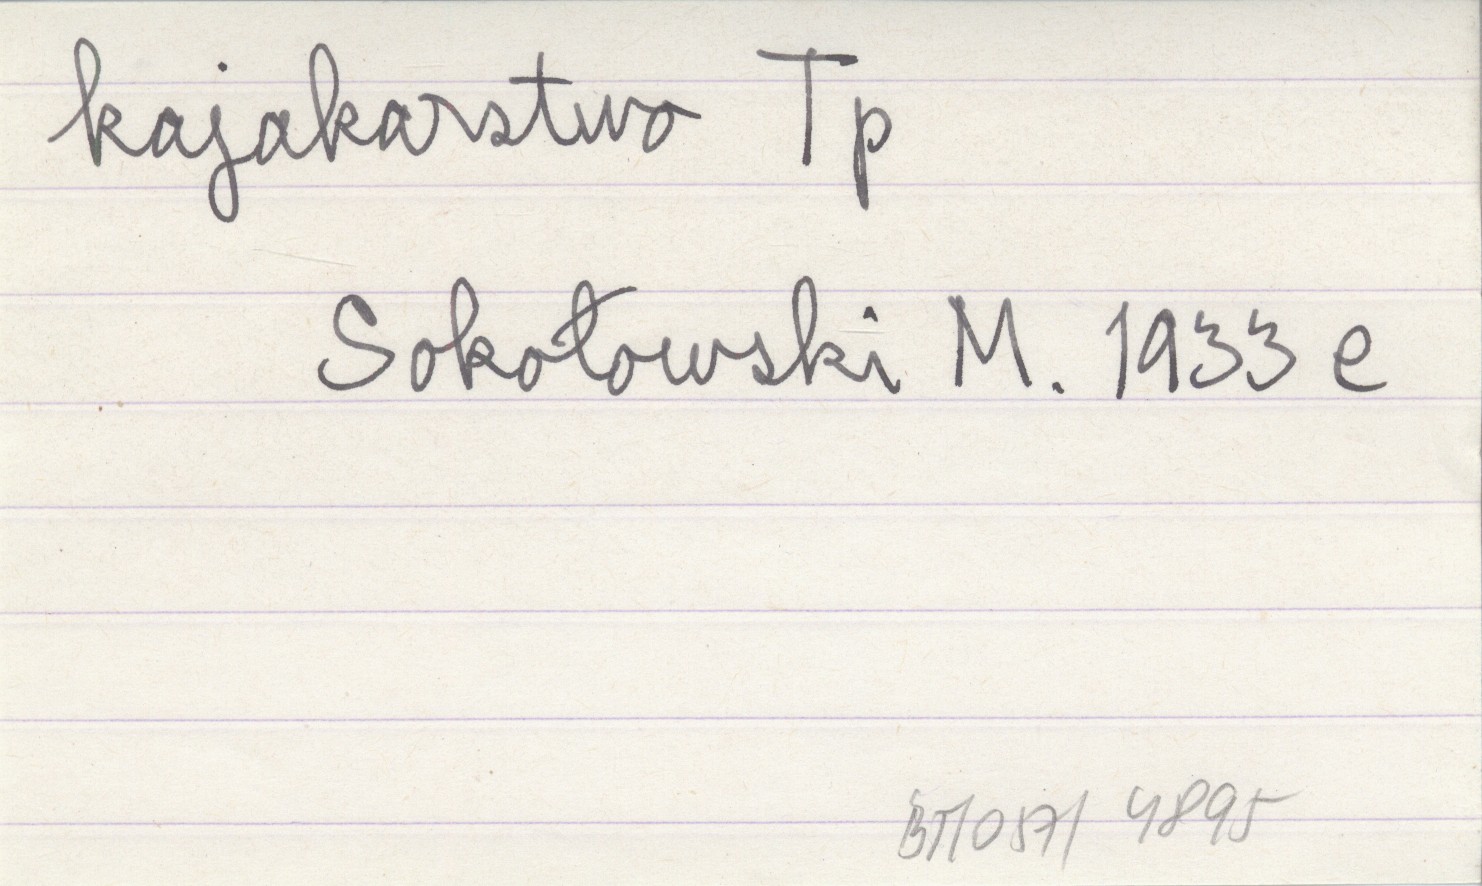 kajakarstwo Tp
Sokołowski M. 1933 e
BT/057/ 4895